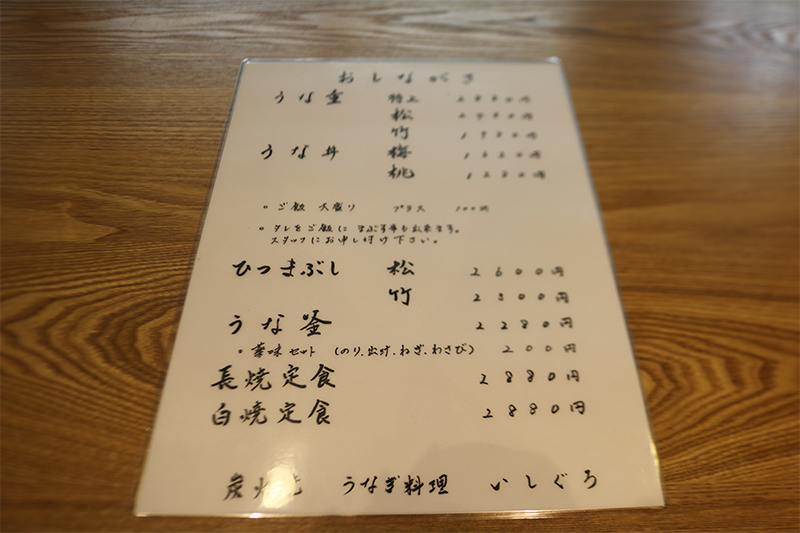 おしながき
うな重 特上 2880円
松 2080円
竹 1980円
うな丼 梅 1620円
桃 1280円
・ご飯 大盛り プラス 100円
・タレをご飯に まぶす事も出来ます。
スタッフにお申し付け下さい。
ひつまぶし 松 2600円
竹 2300円
うな釜 2280円
・薬味セット (のり、出汁、ねぎ、わさび) 200円
長焼定食 2880円
白焼定食 2880円
炭火焼 うなぎ料理 いしぐろ